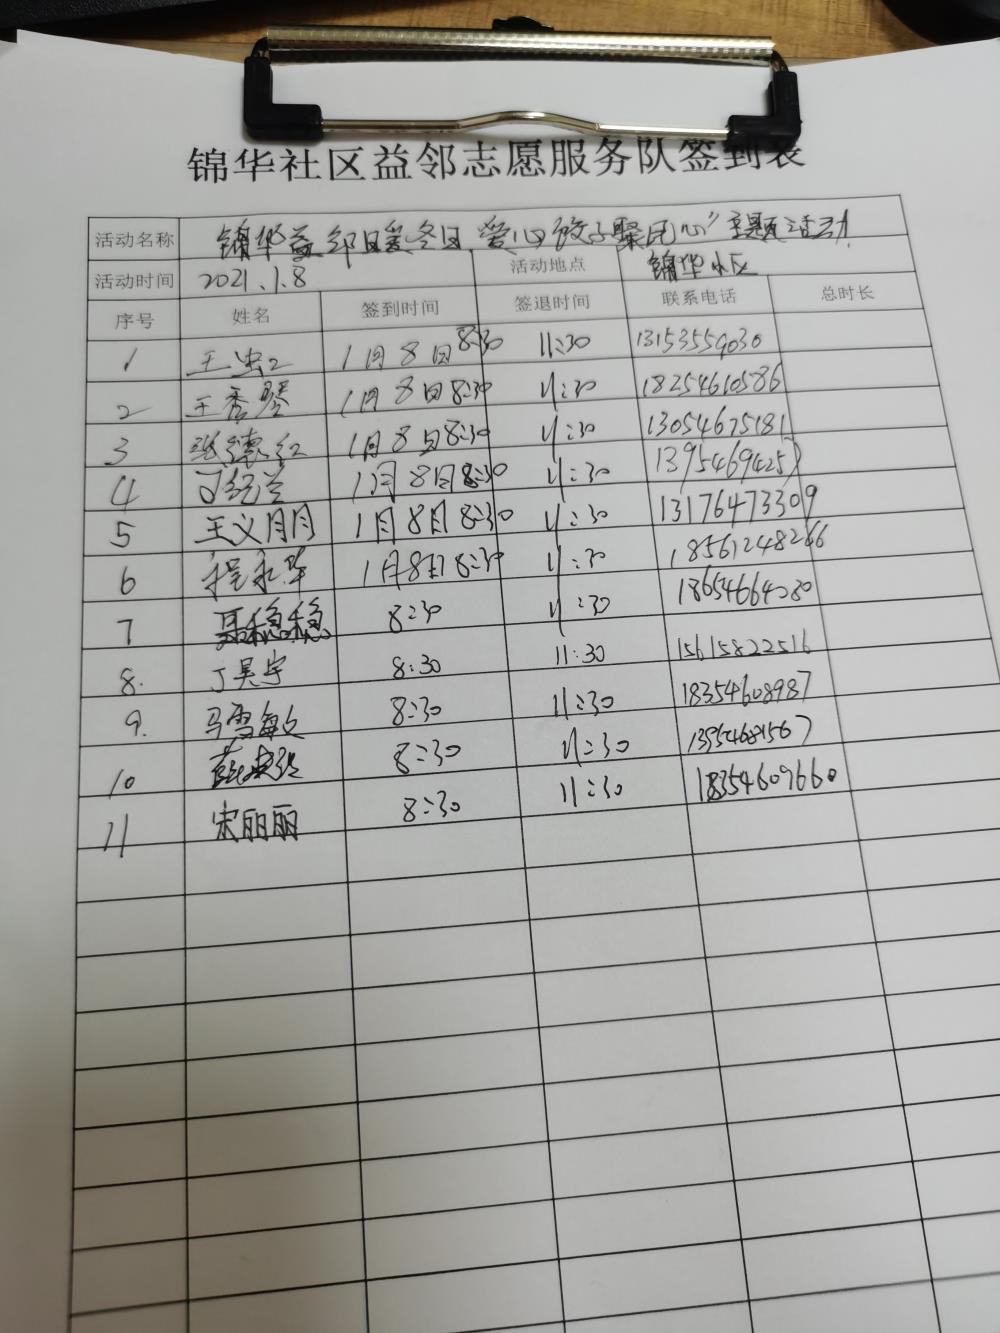 锦华社区益邻志愿服务队签到表
活动名称 锦华益邻日暖冬日,爱心饺子聚民心"主题活动
活动时间 2021.1.8 活动地点 锦华小区
序号 姓名 签到时间 签退时间 联系电话 总时长
1 王 1月8日8:30 11:30 13153559030
2 王秀琴 1月8日8:30 11:30 18254610586
3 张德红 1月8日8:30 11:30 13054675181
4 1月8日8:30 11:30 13954694257
5 王义月月 1月8日8:30 11:30 13176473309
6 程永华 1月8日8:30 11:30 18561248266
7 聂稳稳 8:30 11:30 18654664080
8. 丁昊宇 8:30 11:30 15615822516
9. 马雪敏 8:30 11:30 18354608987
10 8:30 11:30
11 宋丽丽 8:30 11:30 18354609660